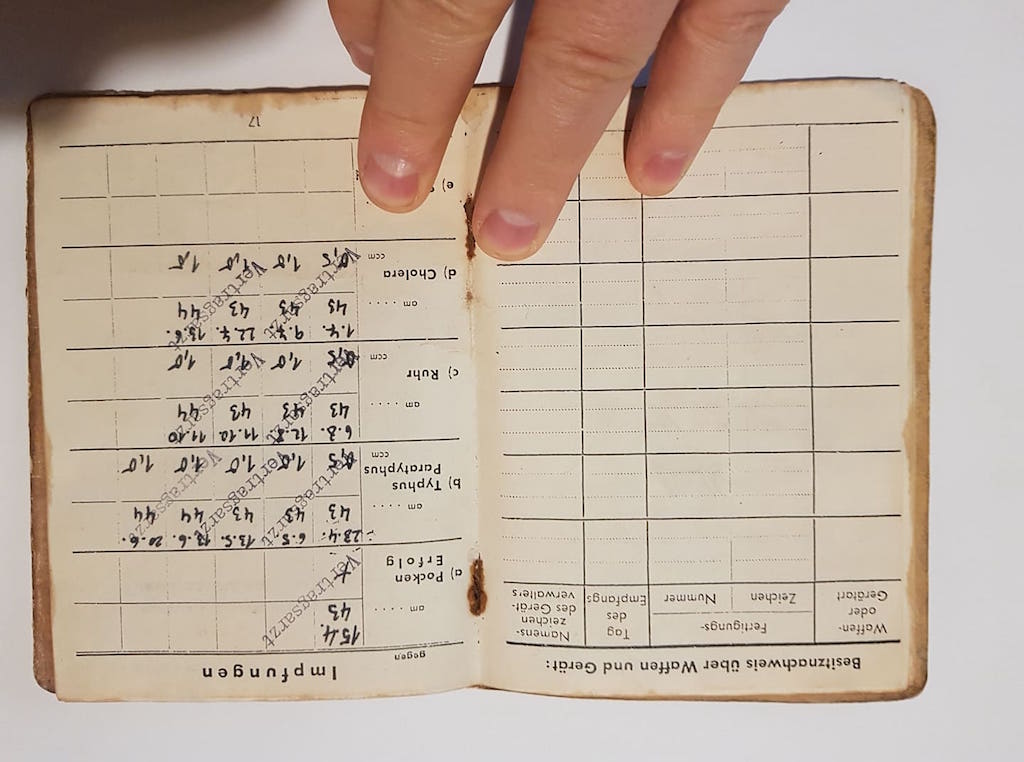 Besitznachweis über Waffen und Gerät:
Waffen-
oder
Gerätart
Fertigungs-
Zeichen
Nummer
Tag
des
Empfangs
Namens-
zeichen
des Gerät-
verwalters
Impfungen
gegen
am .... 15.4.
43
a) Pocken
Erfolg +
Vertragsarzt
28.4. 6.5. 13.5. 20.6.
am .... 43 43 43 44 44
b) Typhus
Paratyphus
ccm 0,5 1,0 1,0 1,0 1,0
Vertragsarzt Vertragsarzt Vertragsarzt
12.8. 11.10. 11.10
am .... 43 43 43 44
c) Ruhr
ccm 0,5 1,0 1,0 1,0
Vertragsarzt Vertragsarzt
1.7. 9.7. 22.7. 13.6.
am .... 43 43 43 44
d) Cholera
ccm 0,5 1,0 1,0 1,0
Vertragsarzt Vertragsarzt
e)
17